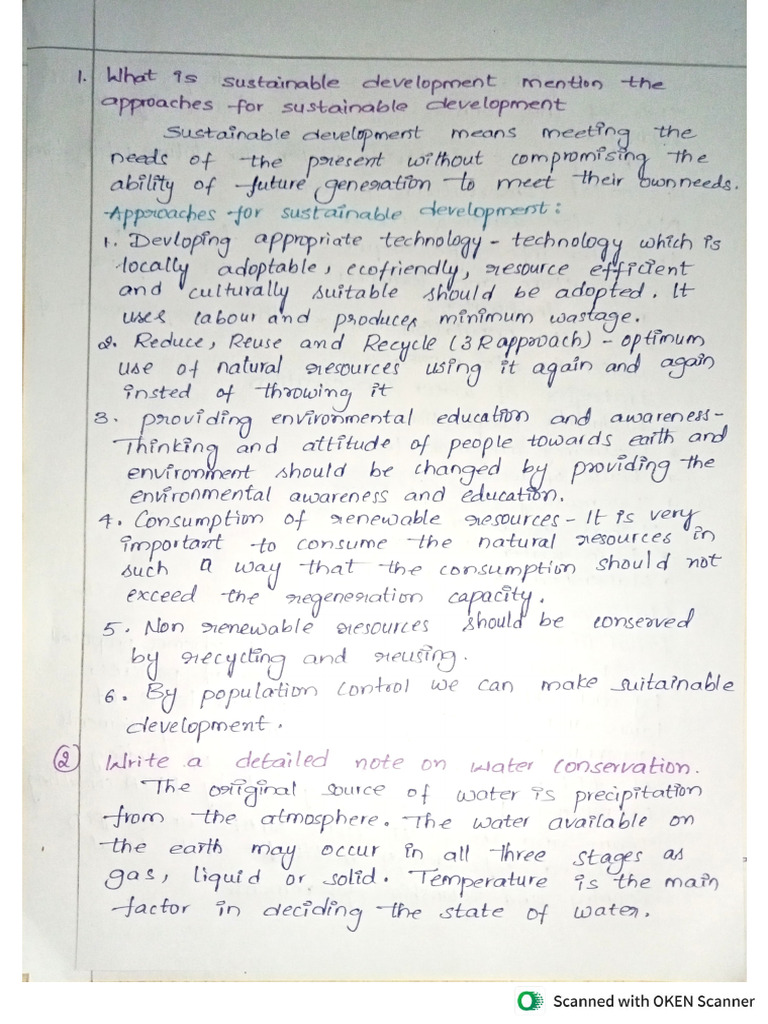 1. What is sustainable development mention the
approaches for sustainable development
Sustainable development means meeting the
needs of the present without compromising the
ability of future generation to meet their own needs.
Approaches for sustainable development:
1. Devloping appropriate technology - technology which is
locally adoptable, ecofriendly, resource efficient
and culturally suitable should be adopted. It
uses labour and produces minimum wastage.
2. Reduce, Reuse and Recycle (3 R approach) - optimum
use of natural resources using it again and again
insted of throwing it
3. providing environmental education and awareness-
Thinking and attitude of people towards earth and
environment should be changed by providing the
environmental awareness and education.
4. Consumption of renewable resources - It is very
important to consume the natural resources in
such a way that the consumption should not
exceed the regeneration capacity.
5. Non renewable resources should be conserved
by recycling and reusing.
6. By population control we can make suitainable
development.
2 Write a detailed note on water conservation.
The original source of water is precipitation
from the atmosphere. The water available on
the earth may occur in all three stages as
gas, liquid or solid. Temperature is the main
factor in deciding the state of water.
Scanned with OKEN Scanner